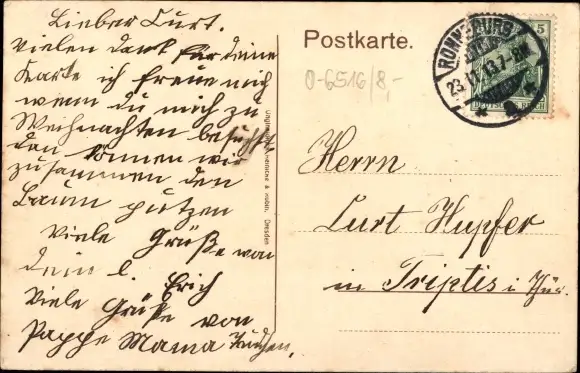 Lieber Curt.
Vielen dank für deine
Karte ich freue mich
wenn du mich zu
Weihnachten besuchst
dan können wir
zusammen den
Baum putzen
Viele Grüße von
dein l. Erich
Viele Grüße von
Pappe Mama
Postkarte.
RONNEBURG
23.11.13.7-8N.
5
DEUTSCHES REICH
0-6516/8,-
Herrn
Curt Hupfer
in Triptis i Thür.
Dresden